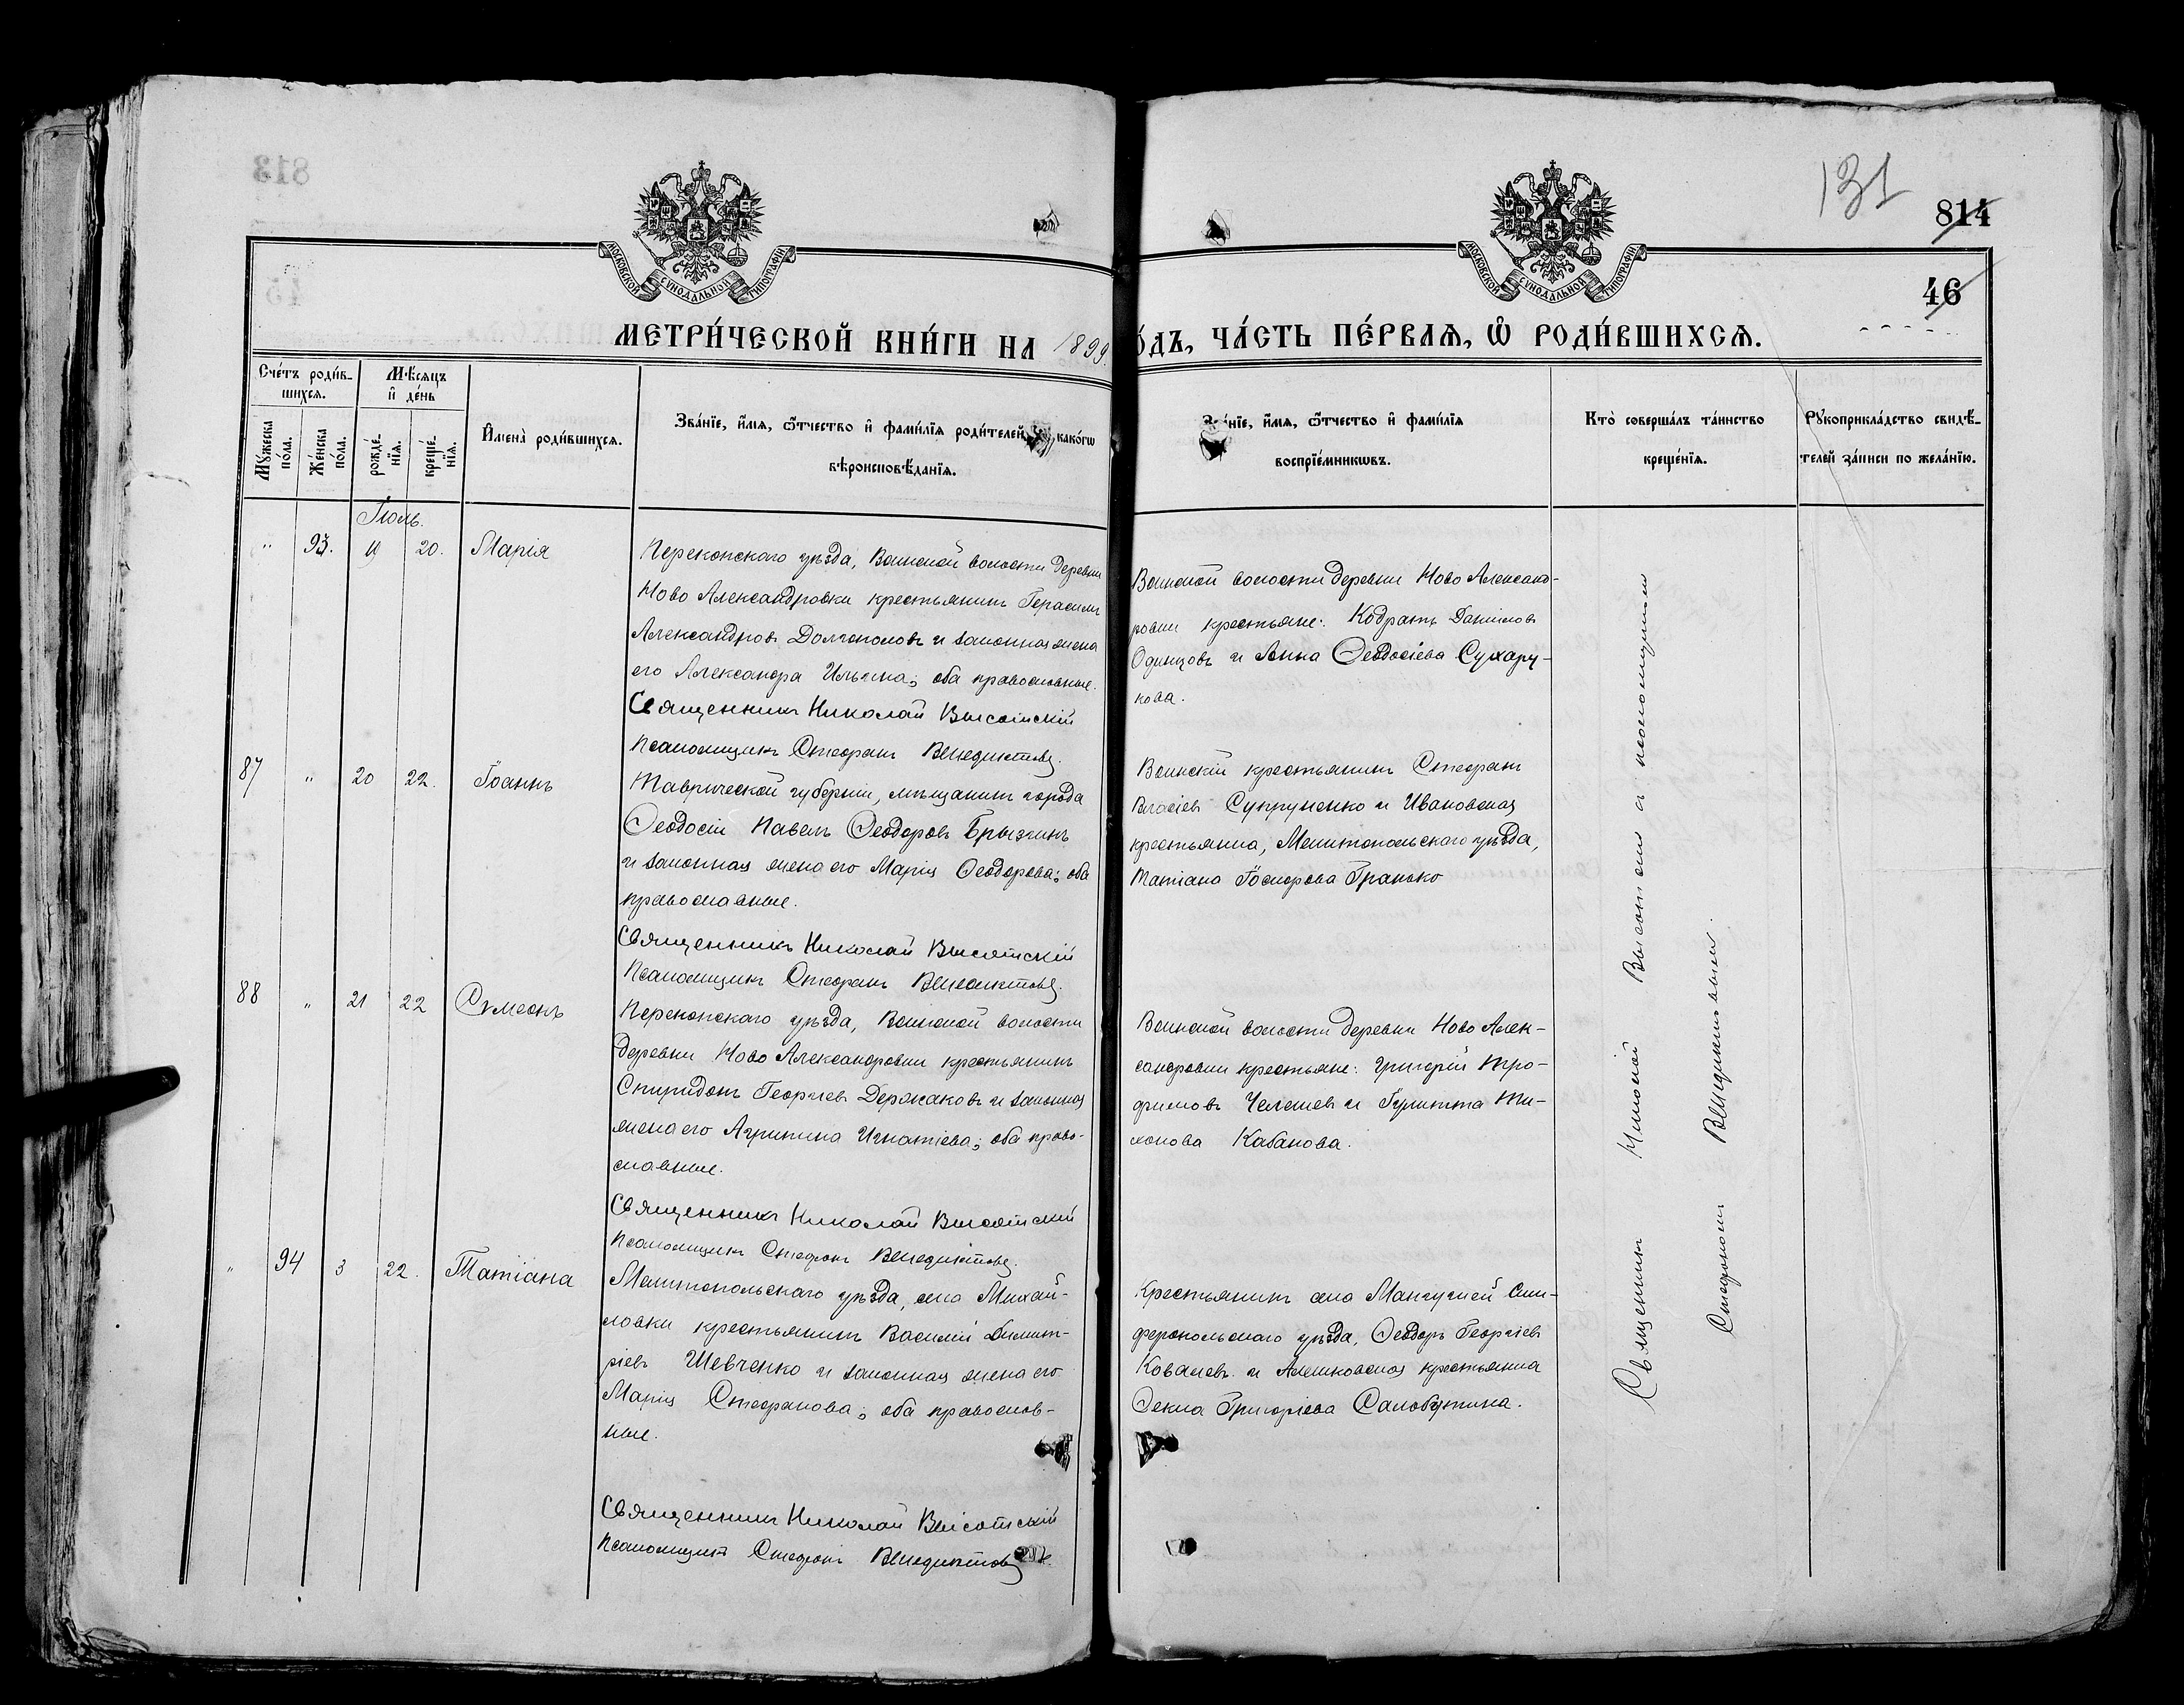 131
814
46
МОСКОВСКОЙ СУНОДАЛЬНОЙ ТИПОГРАФІИ
МОСКОВСКОЙ СУНОДАЛЬНОЙ ТИПОГРАФІИ
МЕТРИ́ЧЕСКОЙ КНИ́ГИ НА 1899
О́ДЪ, ЧА́СТЬ ПЕ́РВАЯ, Ѡ҆ РОДИ́ВШИХСЯ.
Сче́тъ роди́в-
шихся.
Мꙋ́жеска по́ла.
Же́нска по́ла.
Мѣ́сяцъ
и҆ де́нь
рожде́-
нїя.
креще́-
нїя.
И҆мена̀ роди́вшихся.
Зва́нїе, и҆́мя, ѻ҆́тчество и҆ фами́лїя роди́телей, како́гѡ
вѣроисповѣ́данїя.
Зва́нїе, и҆́мя, ѻ҆́тчество и҆ фами́лїя
воспрїе́мникѡвъ.
Кто̀ соверша́лъ та́инство
креще́нїя.
Рꙋкоприкла́дство свидѣ́-
телей за́писи по жела́нїю.
Іюль.
" 93. 20. Марія
Перекопскаго уѣзда, Воинской волости деревни
Ново Александровки крестьянинъ Герасимъ
Александровъ Долгополовъ и законная жена
его Александра Ильина; оба православные.
Священникъ Николай Высотскій
Псаломщикъ Стефанъ Венедиктовъ.
Воинской волости деревни Ново Александ-
ровки крестьяне: Кодратъ Даниловъ
Одинцовъ и Анна Ѳеодосіева Сухару-
кова.
87 " 20 22. Іоаннъ
Таврической губерніи, мѣщанинъ города
Ѳеодосіи Павелъ Ѳеодоровъ Брызгинъ
и законная жена его Марія Ѳеодорова; оба
православные.
Священникъ Николай Высотскій
Псаломщикъ Стефанъ Венедиктовъ.
Воинскій крестьянинъ Стефанъ
Власіевъ Супруненко и Ивановская
крестьянка, Мелитопольскаго уѣзда,
Татіана Гранько
88 " 21 22 Сѵмеонъ
Перекопскаго уѣзда, Воинской волости
деревни Ново Александровки крестьянинъ
Спиридонъ Георгіевъ Держаковъ и законная
жена его Агрипина Игнатіева; оба право-
славные.
Священникъ Николай Высотскій
Псаломщикъ Стефанъ Венедиктовъ.
Воинской волости деревни Ново Алек-
сандровки крестьяне: Григорій Тро-
фимовъ и Іулитта Ти-
хонова Кабанова.
" 94 3 22. Татіана
Мелитопольскаго уѣзда, села Михай-
ловки крестьянинъ Василій Димит-
ріевъ Шевченко и законная жена его
Марія Стефанова; оба православ-
ные.
Священникъ Николай Высотскій
Псаломщикъ Стефанъ Венедиктовъ
Крестьянинъ села Сим-
феропольскаго уѣзда, Ѳеодоръ Георгіевъ
Ковалевъ и Алешковская крестьянка
Ѳекла Григоріева
Священникъ Николай Высотскій съ псаломщикомъ
Стефаномъ Венедиктовымъ.